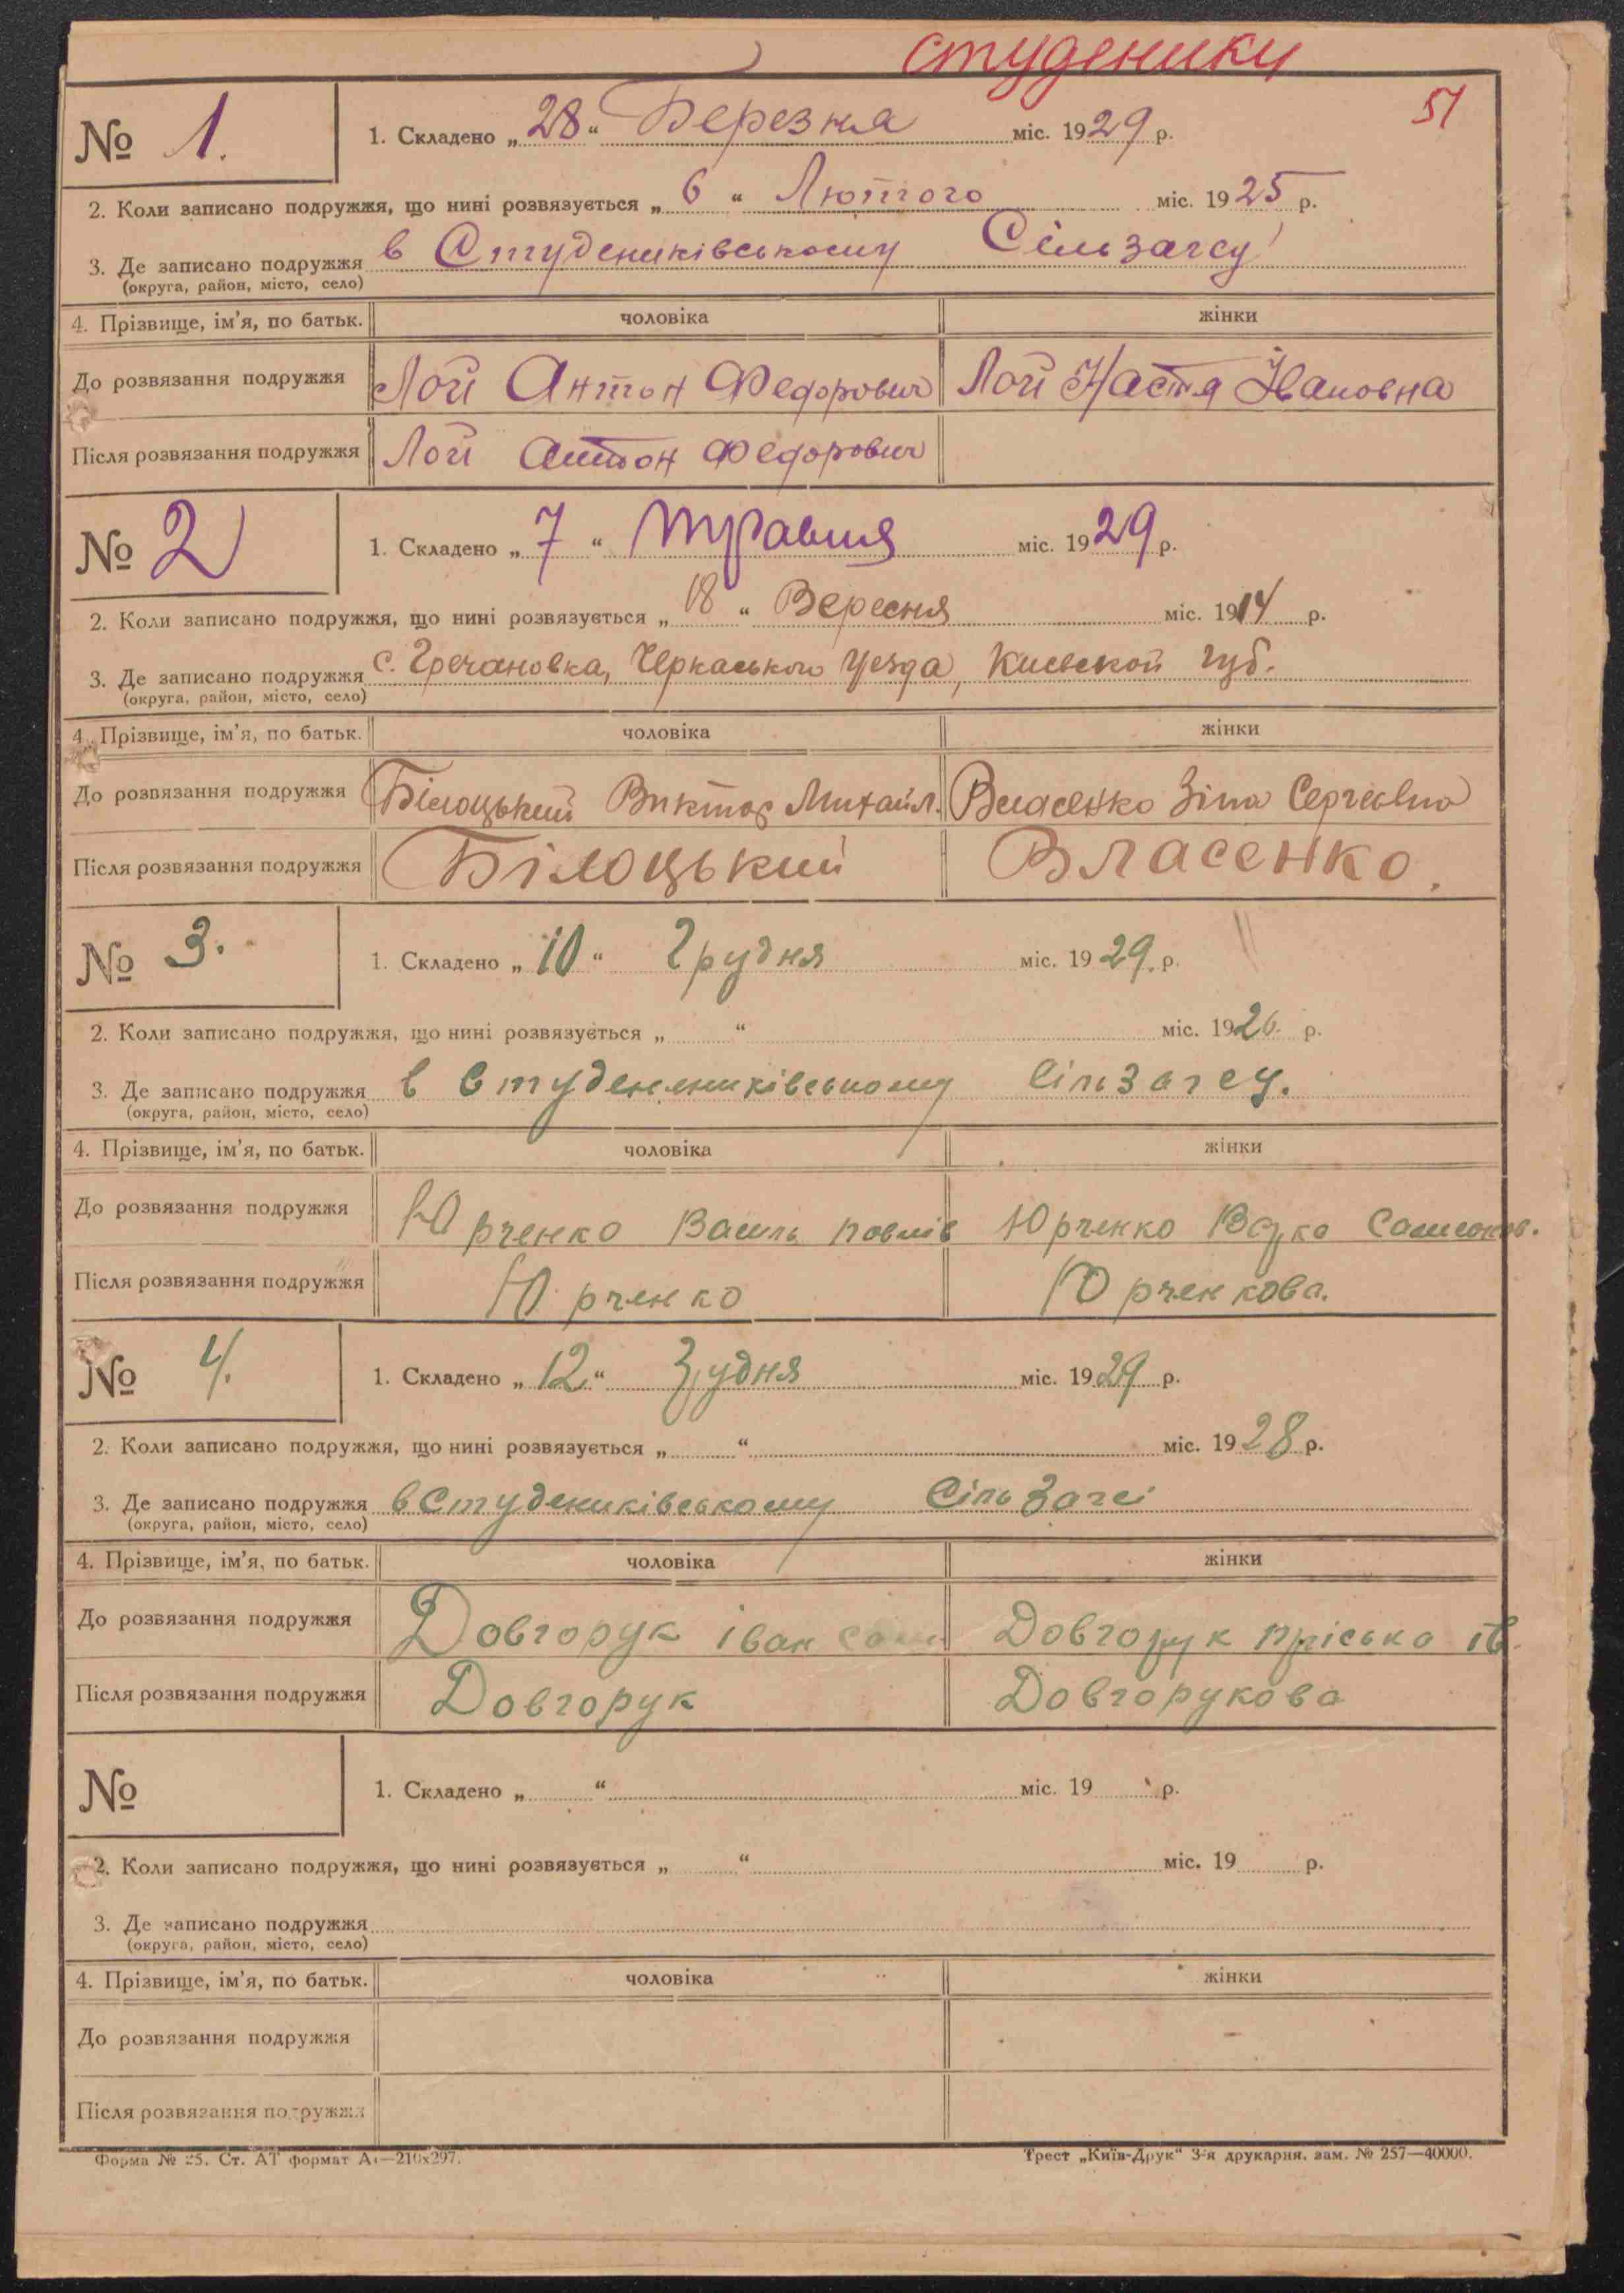 студеники
51
№ 1. 1. Складено „28“ Березня міс. 1929 р.
2. Коли записано подружжя, що нині розвязується „6“ Лютого міс. 1925 р.
3. Де записано подружжя в Студениківському Сільзагсу
(округа, район, місто, село)
4. Прізвище, ім’я, по батьк. чоловіка жінки
До розвязання подружжя Лой Антон Федорович Лой Настя Івановна
Після розвязання подружжя Лой Антон Федорович
№ 2 1. Складено „7“ травня міс. 1929 р.
2. Коли записано подружжя, що нині розвязується „18“ Вересня міс. 1914 р.
3. Де записано подружжя с. Гречановка, Черкаського Уезда, Киевской губ.
(округа, район, місто, село)
4. Прізвище, ім’я, по батьк. чоловіка жінки
До розвязання подружжя Білоцький Виктор Михайл. Власенко Зіна Сергеевна
Після розвязання подружжя Білоцький Власенко.
№ 3. 1. Складено „10“ Грудня міс. 1929. р.
2. Коли записано подружжя, що нині розвязується „ “ міс. 1926. р.
3. Де записано подружжя в Студенениківському Сільзагсу.
(округа, район, місто, село)
4. Прізвище, ім’я, по батьк. чоловіка жінки
До розвязання подружжя Юрченко Василь Павлів Юрченко
Після розвязання подружжя Юрченко Юрченкова.
№ 4. 1. Складено „12“ Грудня міс. 1929 р.
2. Коли записано подружжя, що нині розвязується „ “ міс. 1928 р.
3. Де записано подружжя в Студениківському Сільзагсі
(округа, район, місто, село)
4. Прізвище, ім’я, по батьк. чоловіка жінки
До розвязання подружжя Довгорук іван Довгорук пріська ів.
Після розвязання подружжя Довгорук Довгорукова
№ 1. Складено „ “ міс. 19 р.
2. Коли записано подружжя, що нині розвязується „ “ міс. 19 р.
3. Де записано подружжя
(округа, район, місто, село)
4. Прізвище, ім’я, по батьк. чоловіка жінки
До розвязання подружжя
Після розвязання подружжя
Форма № 25. Ст. АТ формат А4—210х297. Трест „Київ-Друк“ 3-я друкарня, зам. № 257—40000.